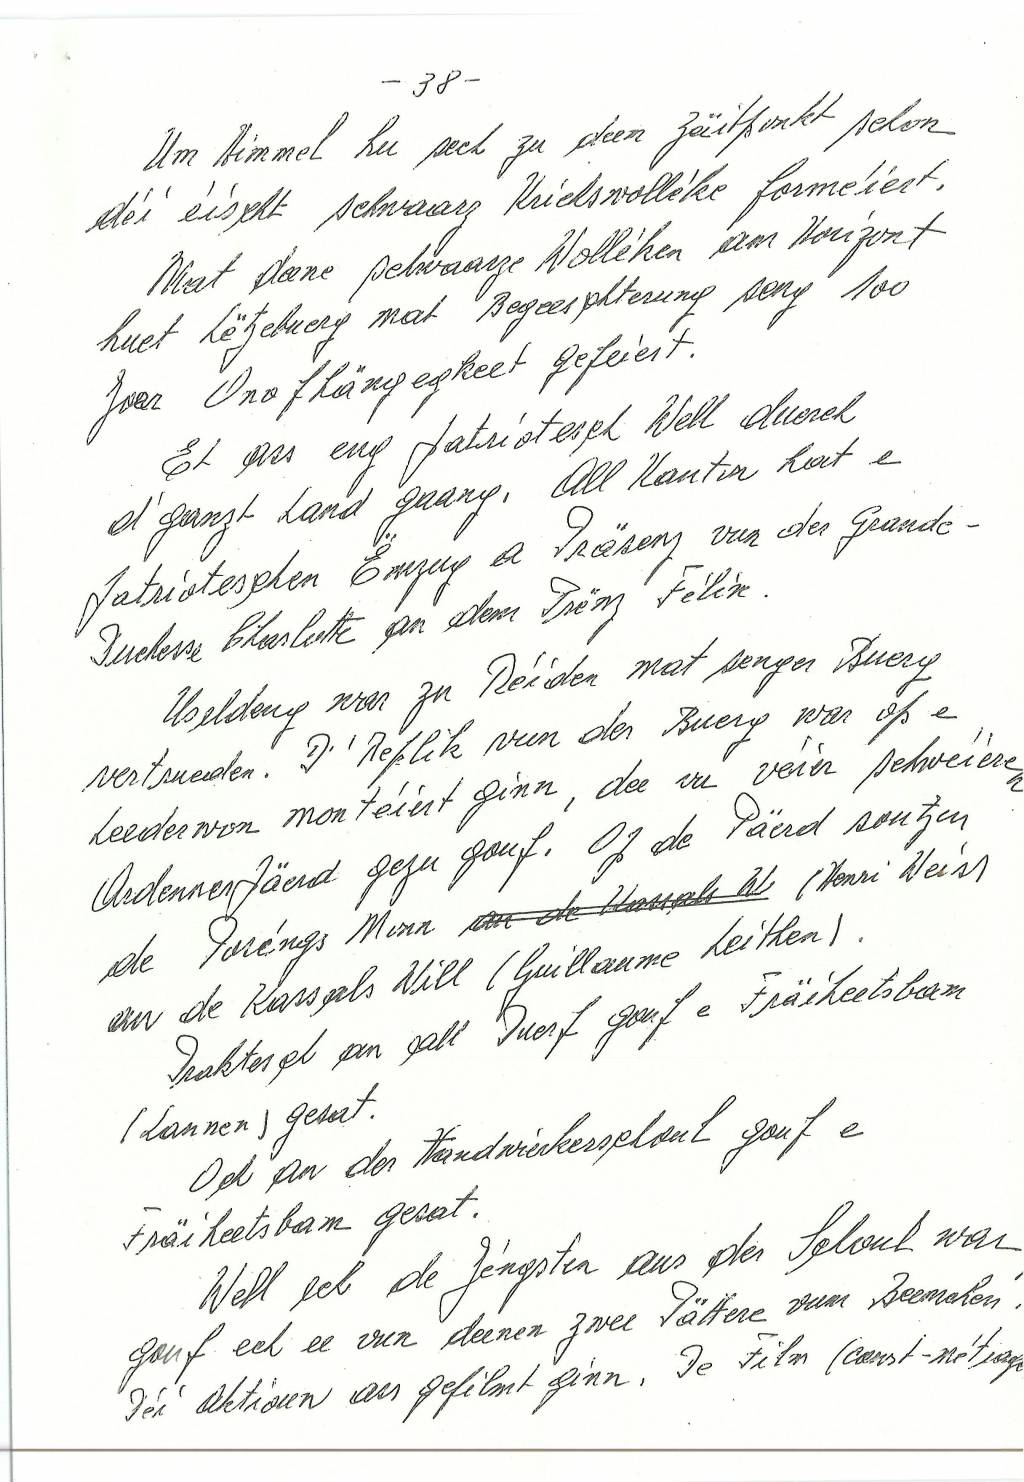 - 38 -
Um Himmel hu sech zu deen Zäitpunkt schon
déi éischt schwaarz Krichswolléke forméiert.
Mat deene schwaarze Wolléken am Horizont
huet Lëtzebuerg mat Begeeschterung seng 100
Joer Onofhängegkeet gefeiert.
Et ass eng patriotesch Well duerch
d'ganzt Land gaang. All Kanton hat e
patrioteschen Ëmzug a Präsenz vun der Grande-
Duchesse Charlotte an dem Prënz Félix.
Useldeng war zu Réiden mat senger Buerg
vertrueden. D'Replik vun der Buerg war op e
Leederwon montéiert ginn, dee vu véier schwéieren
Ardenner Päerd gezu gouf. Op de Päerd soutzen
de Poréngs Monn an de Kassals W (Henri Weis)
an de Kassals Will (Guillaume Leithen).
Praktesch an all Duerf gouf e Fräiheetsbam
(Lannen) gesat.
Och an der Handwierkerschoul gouf e
Fräiheetsbam gesat.
Well ech de Jéngsten aus der Schoul war,
gouf ech ee vun deenen zwee Pättere vum Beemchen.
Déi Aktioun ass gefilmt ginn. De Film (court-métrage